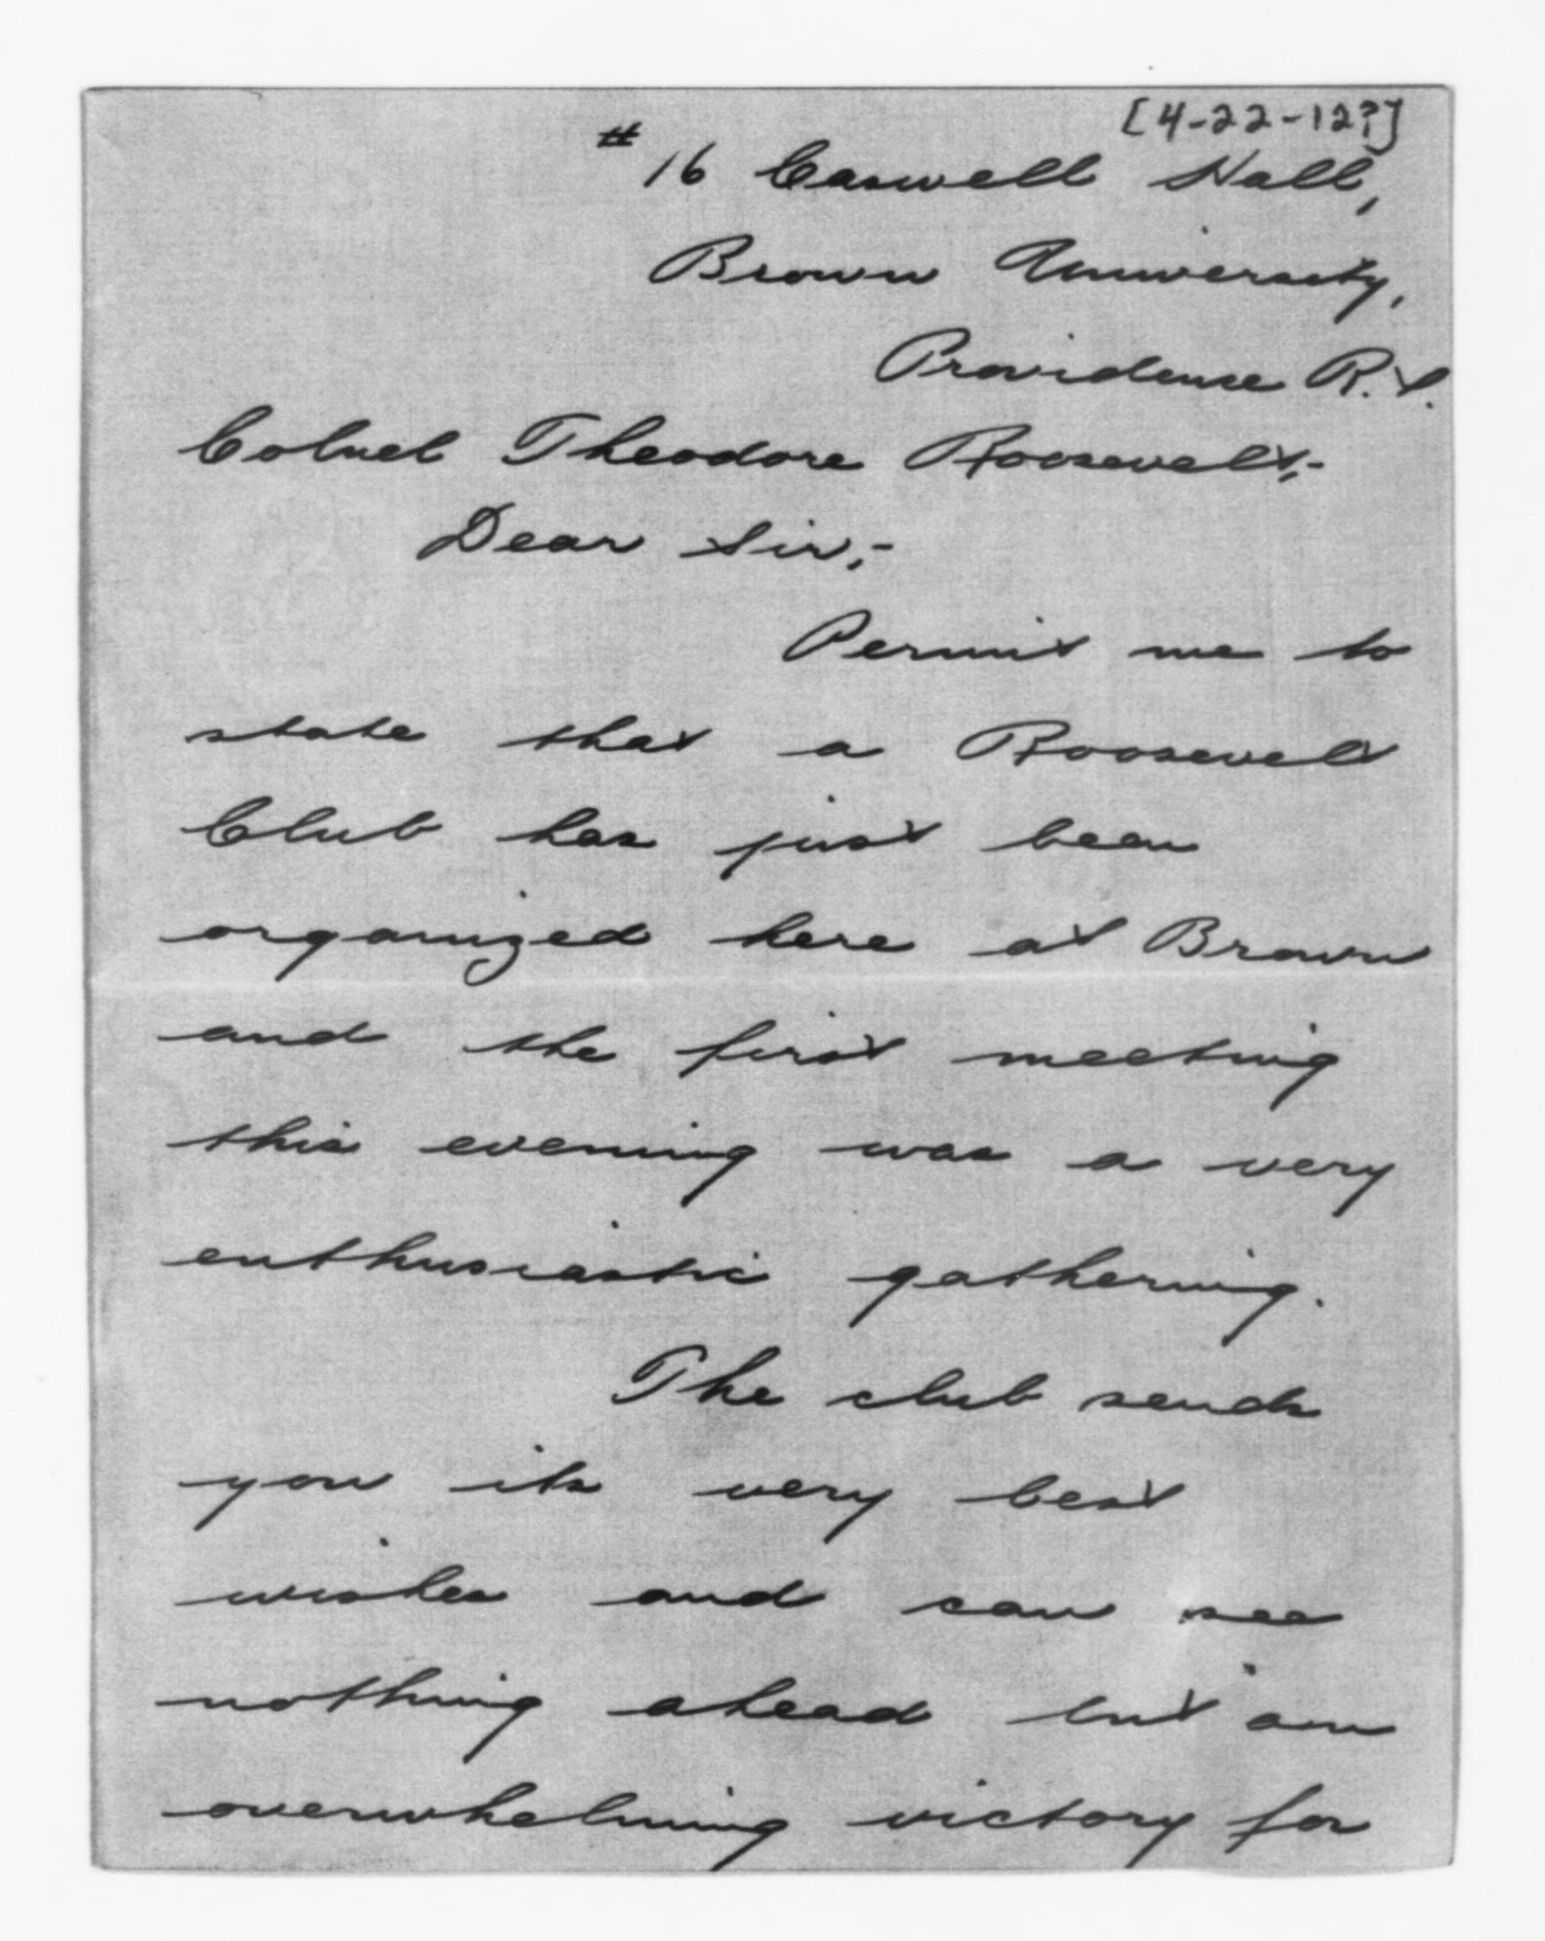 [4-22-12?]
# 16 Caswell Hall,
Brown University,
Providence R.I.
Colnel Theodore Roosevelt,-
Dear Sir,-
Permit me to
state that a Roosevelt
Club has just been
organized here at Brown
and the first meeting
this evening was a very
enthusiastic gathering.
The club sends
you its very best
wishes and can see
nothing ahead but an
overwhelming victory for